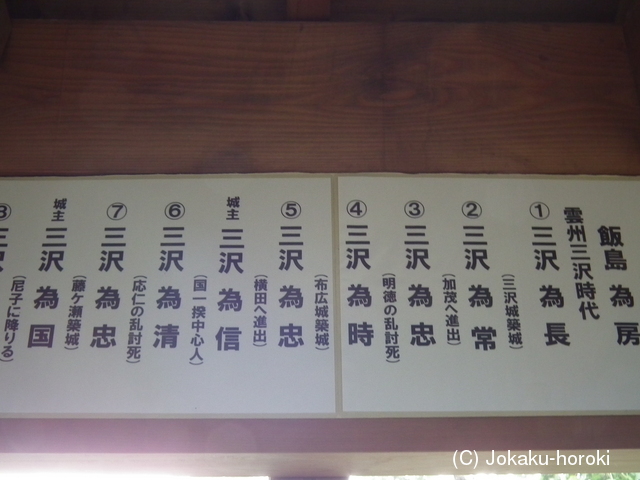 飯島為房
雲州三沢時代
①三沢為長
（三沢城築城）
②三沢為常
（加茂へ進出）
③三沢為忠
（明徳の乱討死）
④三沢為時
（布広城築城）
⑤三沢為忠
（横田へ進出）
城主 三沢為信
（国一揆中心人）
⑥三沢為清
（応仁の乱討死）
⑦三沢為忠
（藤ケ瀬築城）
城主 三沢為国
（尼子に降りる）
三沢
(C) Jokaku-horoki